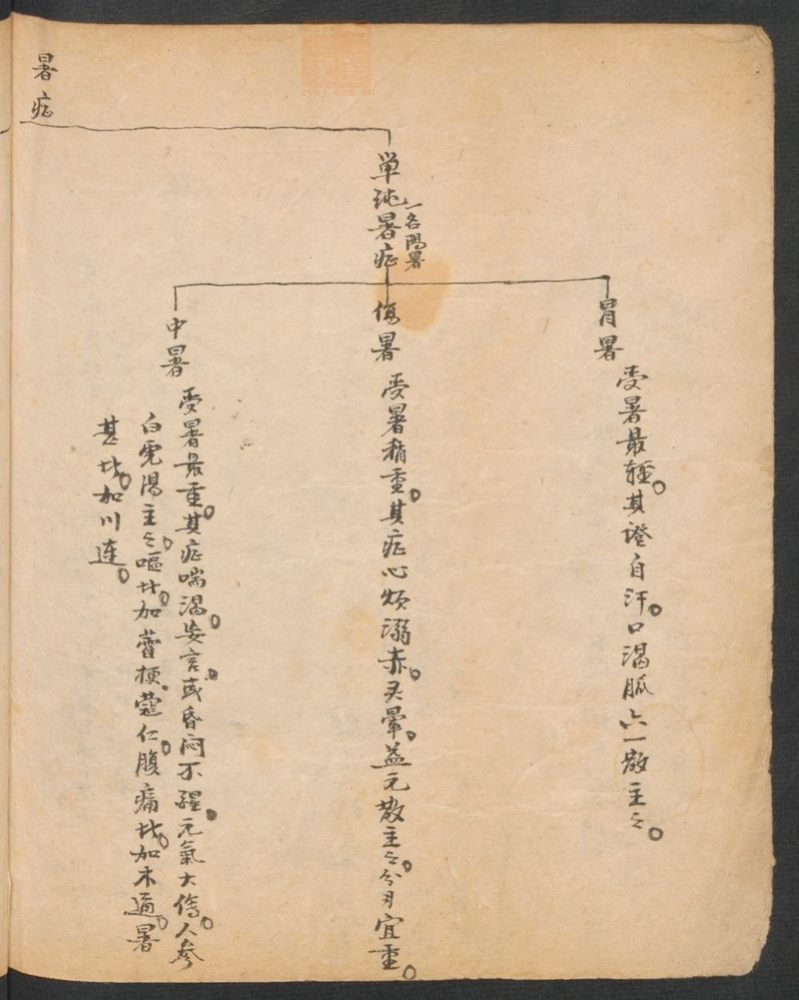 暑症
单纯暑症
一名陽暑
冒暑
受暑最輕。其證自汗。口渴脈 六一散主之。
傷暑
受暑稍重。其症心煩溺赤。頭暈。益元散主之。分月宜重。
中暑
受暑最重。其症喘渴。妄言。或昏闷不醒。元氣大傷。人参
白虎湯主之。嘔者。加藿梗。蔻仁。腹痛者。加木通。暑
甚者。加川連。